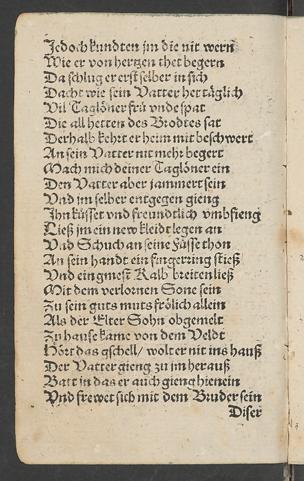 Jedoch kundten jm die nit wern
Wie er von hertzen thet begern
Da schlug er erst selber in sich
Dacht wie sein Vatter het täglich
Vil Taglöner frü vnde spat
Die all hetten des Brodtes sat
Derhalb kehrt er heim mit beschwert
An sein Vatter nit mehr begert
Mach mich deiner Taglöner ein
Den Vatter aber jammert sein
Vnd im selber entgegen gieng
Ihn küsset vnd freundtlich vmbfieng
Ließ jm ein new kleidt legen an
Vnd Schuch an seine Füsse thon
An sein handt ein fingerring stieß
Vnd ein gmest Kalb breiten ließ
Mit dem verlornen Sone sein
Zu sein guts muts frölich allein
Als der Elter Sohn obgemelt
Zu hause kame von dem Veldt
Hört das gschell / wolt er nit ins hauß
Der Vatter gieng zu im herauß
Batt in das er auch gieng hienein
Vnd frewet sich mit dem Bruder sein
Diser